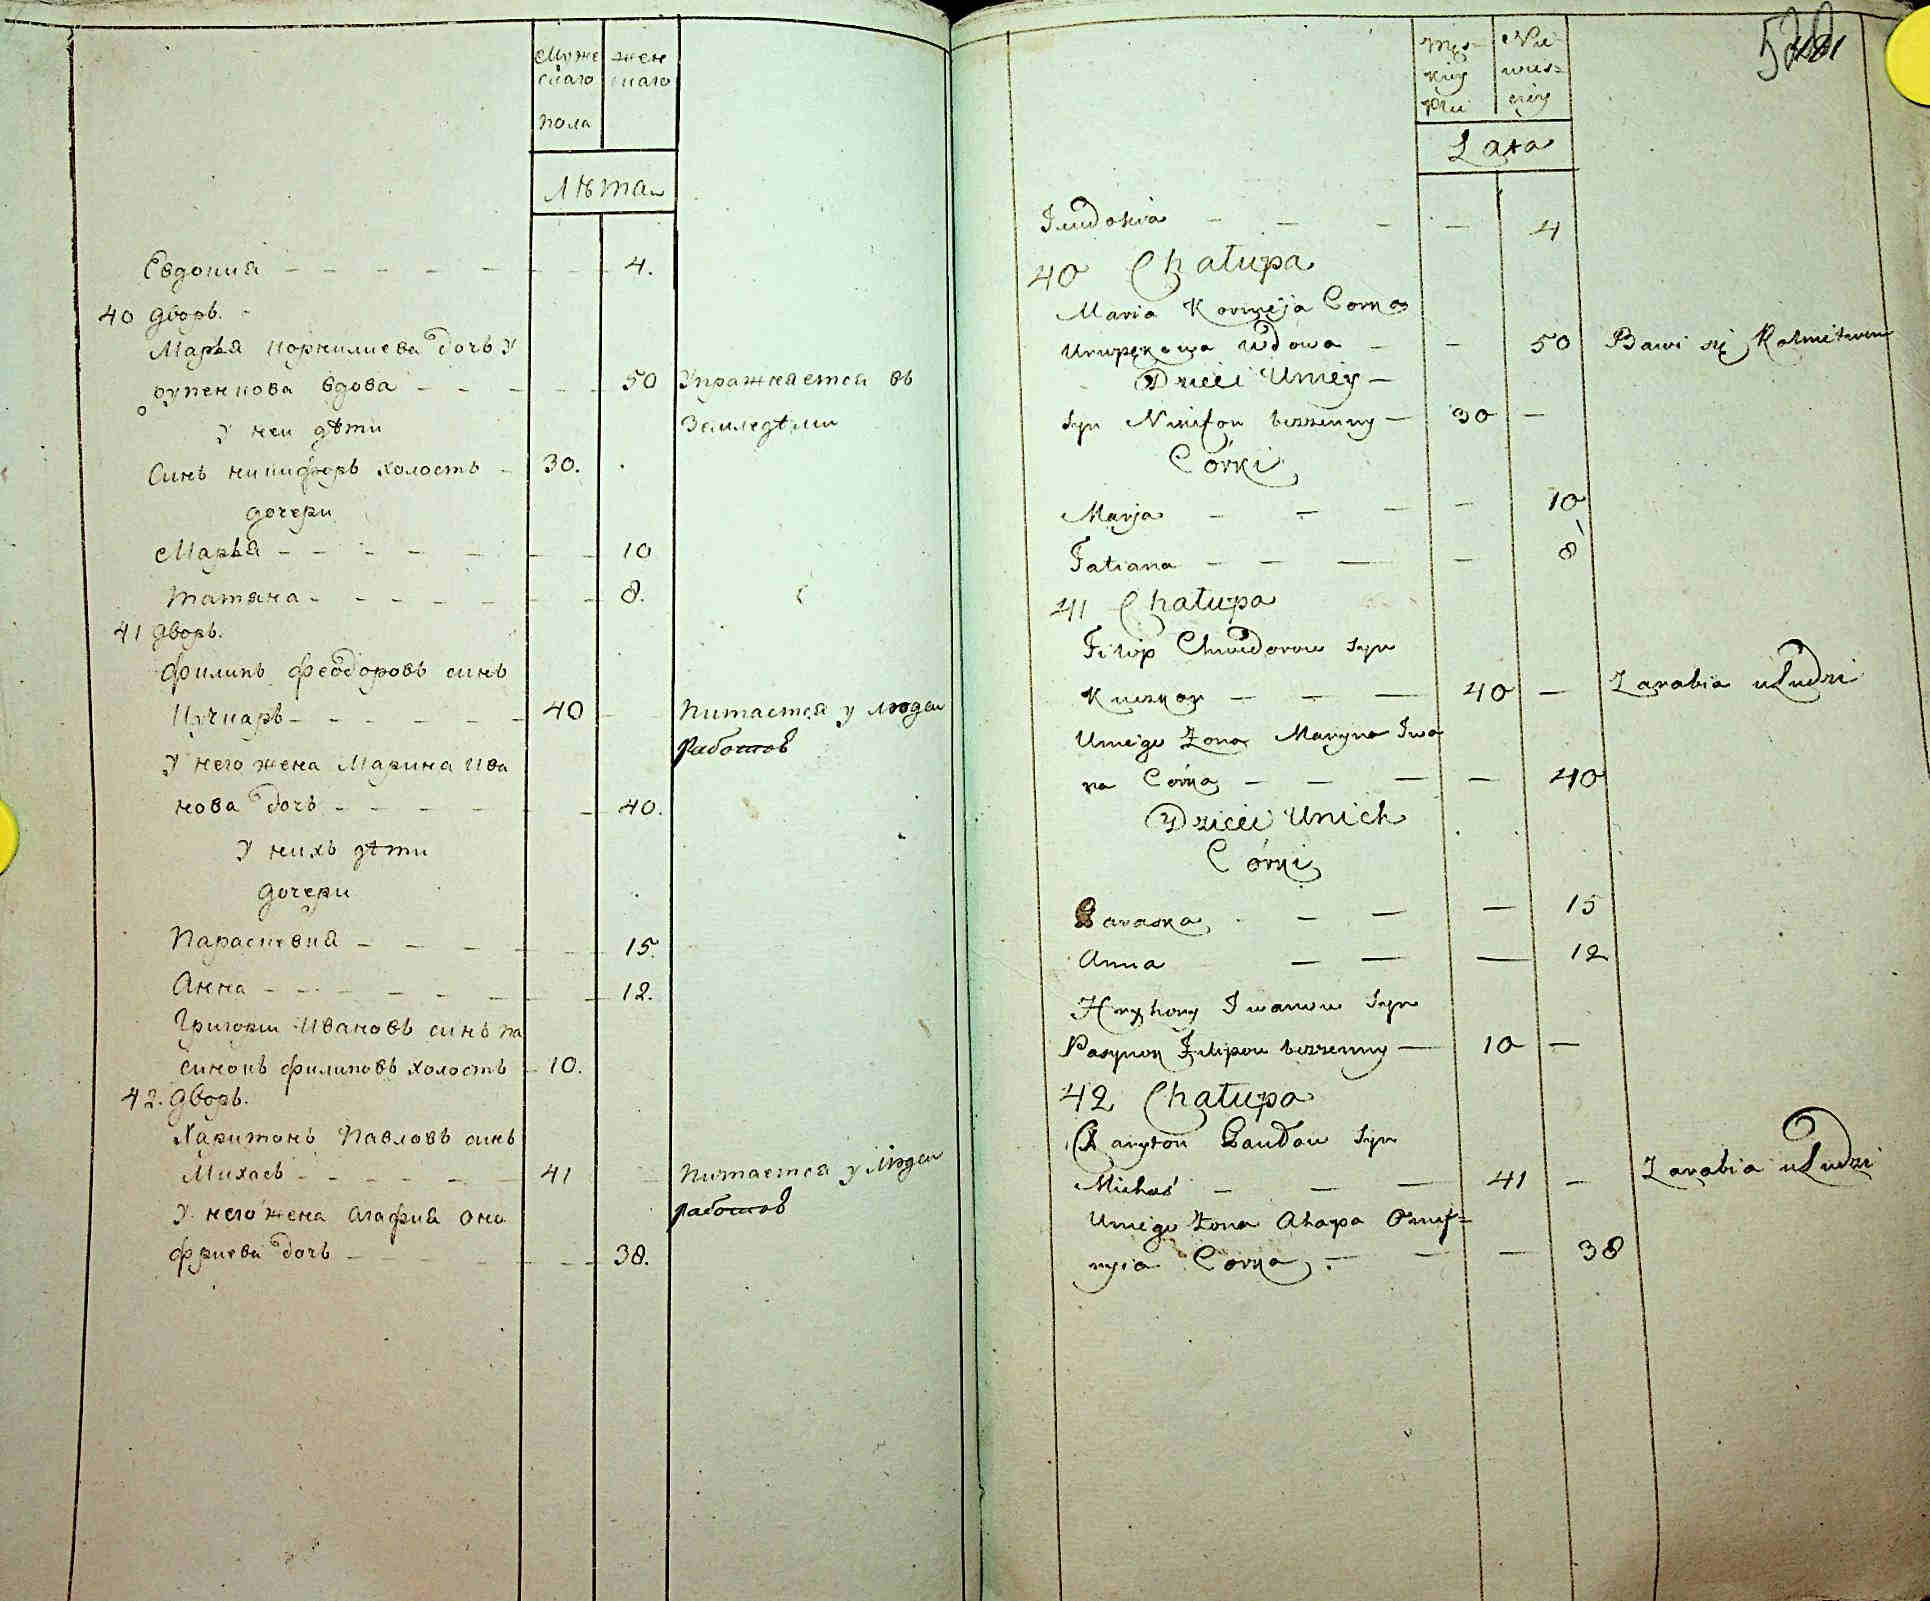 Муже жен
скаго скаго
пола
Лѣта
Евдокия - - - - - - - 4.
40 дворъ.
Марья корнилиева дочь у
рупенкова вдова - - - - - 50 Упражняется въ
Земледѣлии
У неи дѣти
Синъ никифоръ холостъ - 30.
дочери
Марья - - - - - - - 10
Татяна - - - - - - - 8.
41 дворъ.
Филипъ феодоровъ синъ
Кучкаръ - - - - - - 40 - - Питается у людеи
работою
У него жена Марина Ива
нова дочь - - - - - - 40.
У нихъ дѣти
дочери
Параскевия - - - - - - 15.
Анна - - - - - - - - 12.
Григории Ивановъ синъ па
синокъ филиповъ холостъ - 10.
42. дворъ.
Харитонъ Павловъ синъ
Михась - - - - - - 41 - Питается у людеи
работою
У него жена Агафия Оно
фриева дочь - - - - - - 38.
Męs- Nie-
kiey wies-
Płci ciey
Lata
Iewdokia - - - - 4
40 Chałupa
Maria Kornieja Corka
Urupękowa wdowa - - 50 Bawi się Rolnictwem
Dzieci Unieÿ -
Syn Nikifor bezzenny - 30 -
Córki
Marja - - - - 10
Tatiana - - - - 8
41 Chałupa
Filip Chwedorow Syn
Kuczkar - - - 40 - Zarabia u Ludzi
Uniego Zona Maryna Iwa
na Córka - - - - 40
Dzieci Unich
Córki
Paraska - - - - 15
Anna - - - 12
Hryhory Iwanow Syn
Pasynok Filipow bezzenny - 10 -
42 Chałupa
Charyton Pawłow Syn
Michaś - - - 41 - Zarabia u Ludzi
Uniego Zona Ahapa Onuf=
ryia Corka - - - 38